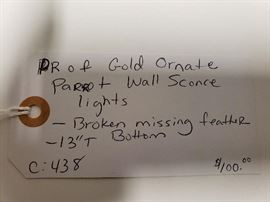 PR of Gold Ornate
Parrot Wall Sconce
lights
- Broken missing feather
-13"T Bottom
C:438
$100.00